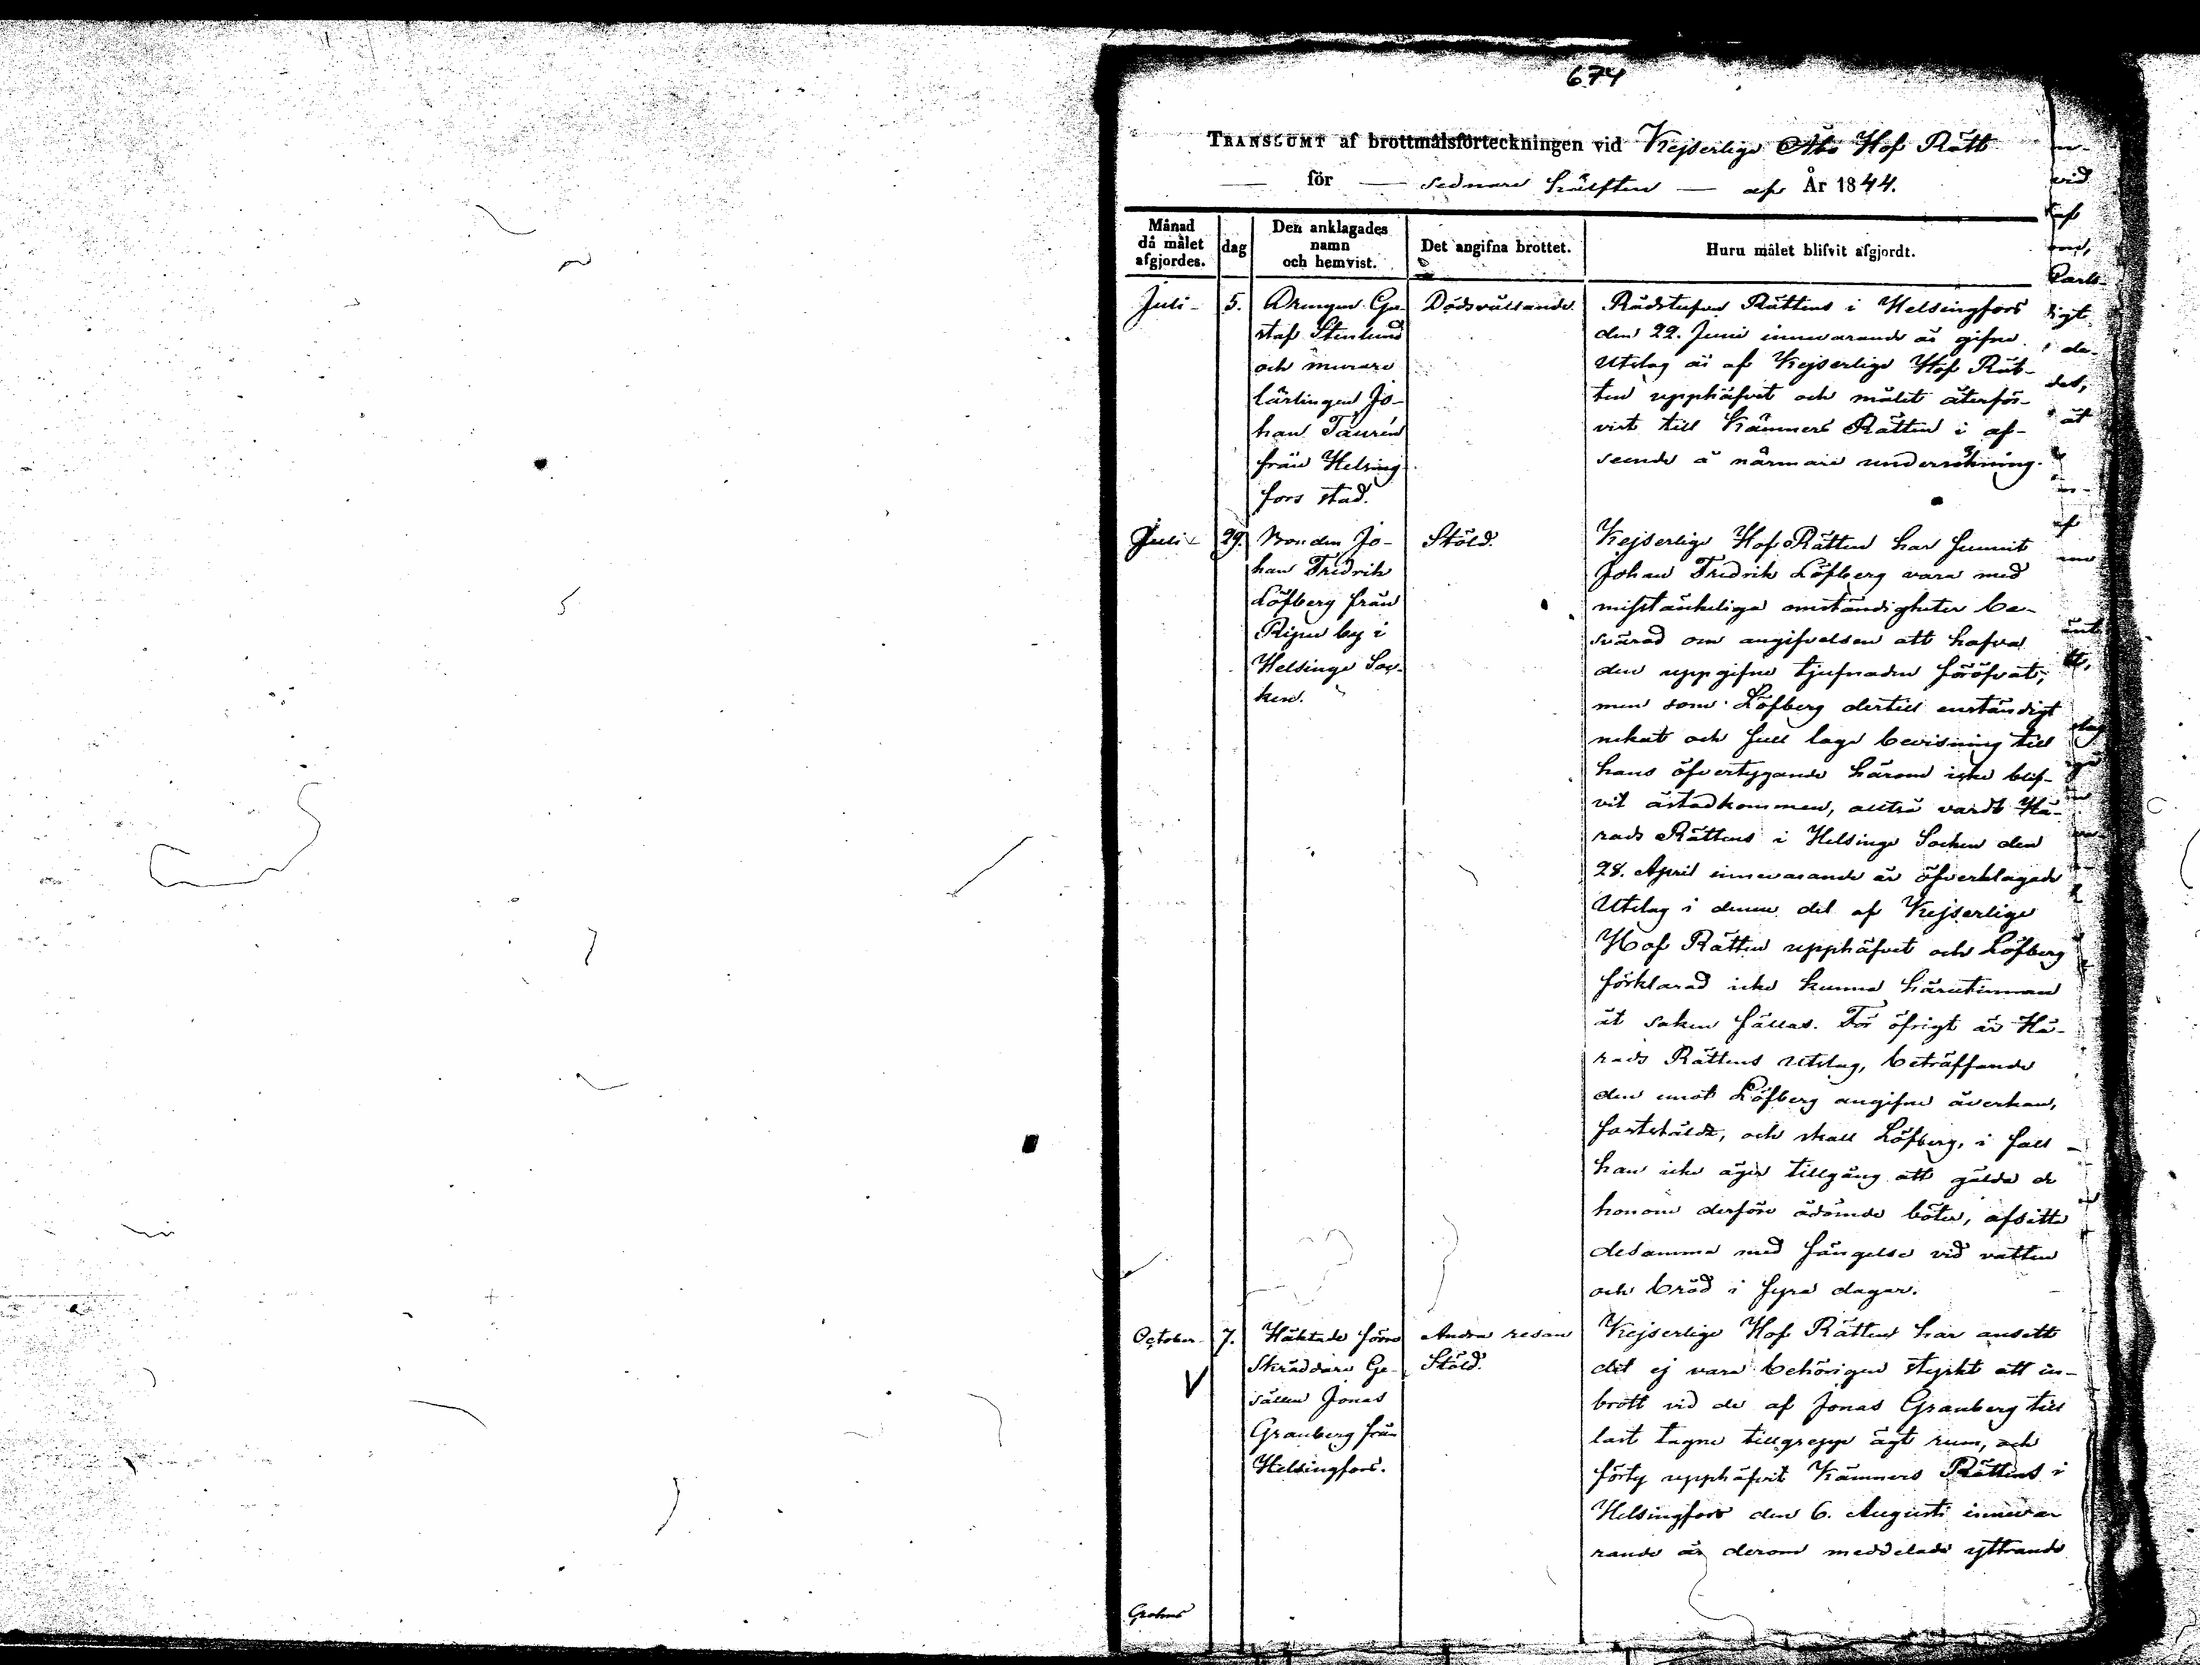 674
TRANSSUMT af brottmålsförteckningen vid Kejserliga Åbo Hof Rätt
för sednare hälften af År 1844.
Månad då målet afgjordes.
dag
Den anklagades namn och hemvist.
Det angifna brottet.
Huru målet blifvit afgjordt.
Juli
5.
Drengen Gu-
staf Stenlund
och murare
lärlingen Jo-
han Taurén
från Helsing
fors stad.
Dödsvållande.
Rådstufvu Rättens i Helsingfors
den 22. Juni innevarande år gifne
Utslag är af Kejserliga Hof Rät-
ten upphäfvit och målet återför-
vist till Kämners Rätten i af-
seende å närmare undersökning.
Juli
29.
Bonden Jo-
han Fredrik
Löfberg från
by i
Helsinge Soc-
ken.
Stöld.
Kejserliga Hof Rätten har funnit
Johan Fredrik Löfberg vara med
misstänkeliga omständigheter be-
svärad om angifvelsen att hafva
den uppgifne tjufnaden föröfvat;
men som Löfberg dertill enständigt
nekat och full laga bevisning till
hans öfvertygande härom icke blif-
vit åstadkommen, alltså vardt Hä-
rads Rättens i Helsinge Socken den
28. April innevarande år öfverklagade
Utslag i denna del af Kejserliga
Hof Rätten upphäfvet och Löfberg
förklarad icke kunna härutinnan
åt saken fällas. För öfrigt är Hä-
rads Rättens Utslag, beträffande
den emot Löfberg angifne åverkan,
fastställdt, och skall Löfberg, i fall
han icke äger tillgång att gälda de
honom derföre ådömde böter, afsitta
desamma med fängelse vid vatten
och bröd i fyra dagar.
October
7.
Häktade förre
Skräddare Ge-
sällen Jonas
Granberg från
Helsingfors.
Andra resan
Stöld.
Kejserliga Hof Rätten har ansett
det ej vara behörigen styrkt att in-
brott vid de af Jonas Granberg till
last tagne tillgrepp ägt rum, och
förty upphäfvit Kämners Rättens i
Helsingfors den 6. Augusti innevar
rande år derom meddelade yttrande